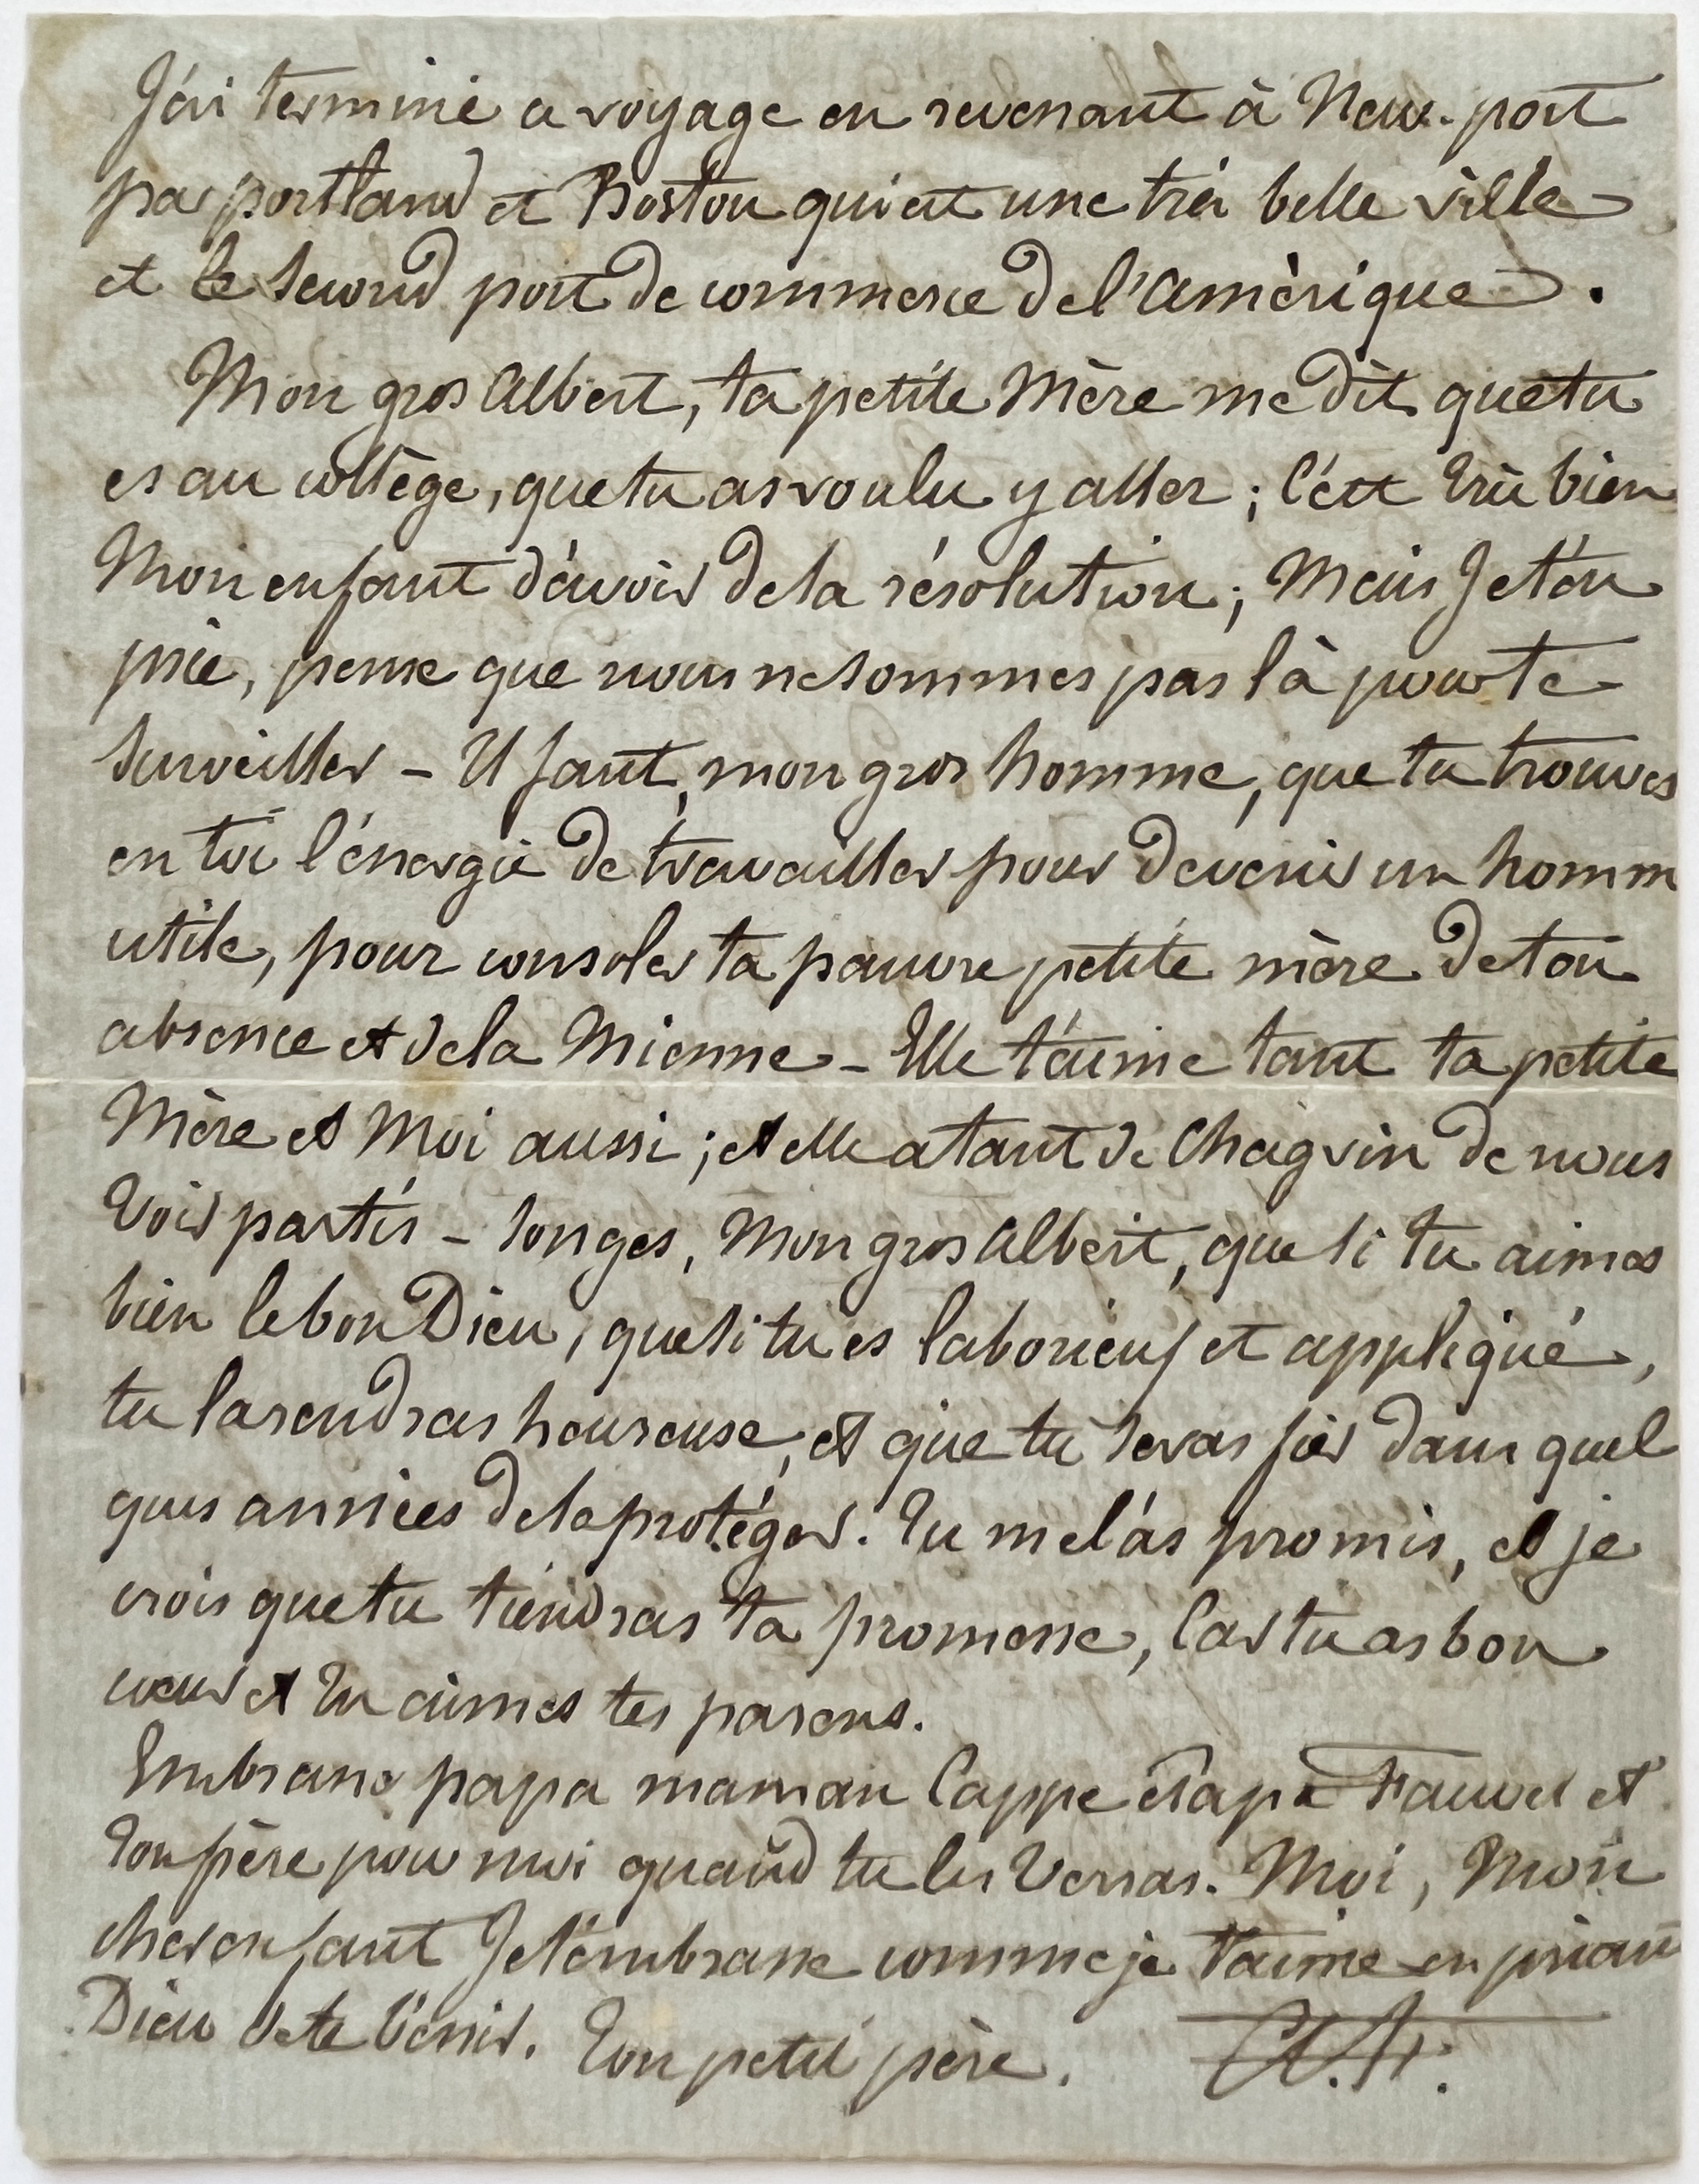 J'ai terminé ce voyage en revenant à New-port
par portland et Boston qui est une très belle ville
et le second port de commerce de l'amérique.
Mon gros Albert, ta petite Mère me dit que tu
es au collège, que tu as voulu y aller ; C'est très bien
Mon enfant d'avoir de la résolution ; Mais Je t'en
prie, pense que nous ne sommes pas là pour te
surveiller – Il faut, mon gros homme, que tu trouves
en toi l'énergie de travailler pour devenir un homm
utile, pour consoler ta pauvre petite mère de ton
absence et de la Mienne – Elle t'aime tant ta petite
Mère et Moi aussi ; et elle a tant de Chagrin de nous
Voir partis – songes, Mon gros Albert, que si tu aimes
bien le bon Dieu, que si tu es laborieux et appliqué,
tu la rendras heureuse, et que tu seras fier dans quel
ques années de la protéger. Tu me l'as promis, et je
crois que tu tiendras ta promesse, Car tu as bon
cœur et tu aimes tes parens.
Embrasse papa maman Cappe et Fauvel et
ton père pour moi quand tu les Verras. Moi, Mon
cher enfant Je t'embrasse comme je t'aime en priant
Dieu de te bénir. Ton petit père.